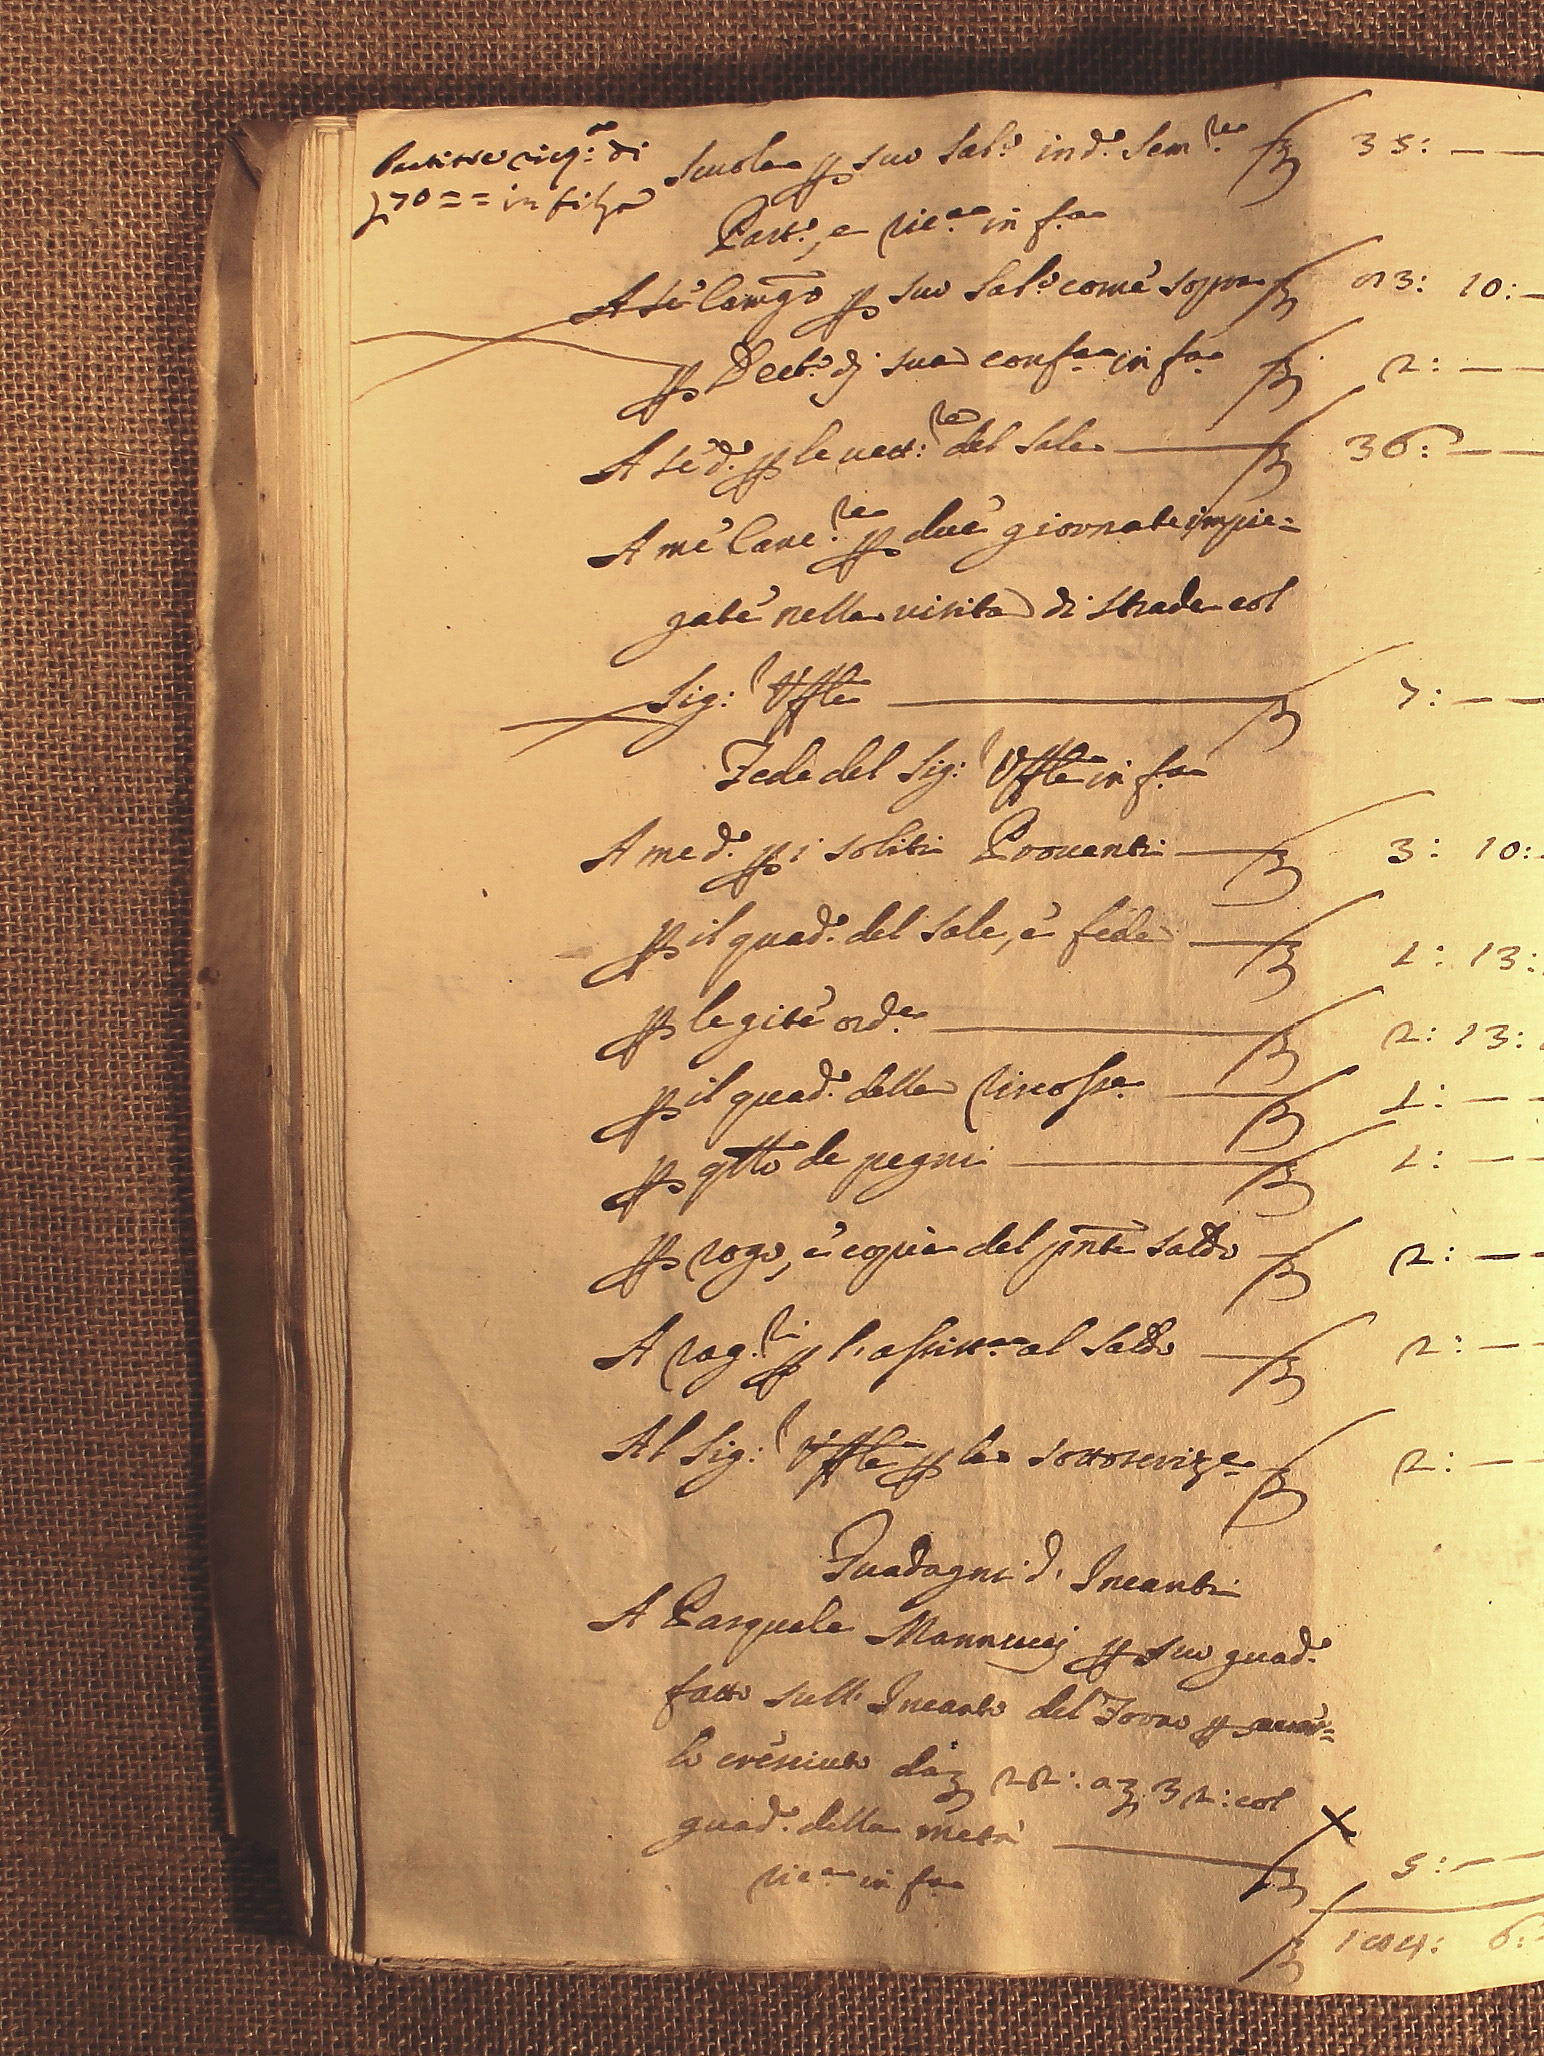 Scuola p suo Sal.o in d.o Sem.re 35: — —
Part.o, e ric.a in f.a
A sè Camgo p suo Sal.o come sopra 23: 10: —
p Decto di sua conf.a in f.a 2: — —
A sè d.o p le vett.re del Sale 36: — —
A mè Canc.re p due giornate impie=
gate nella visita di strade col
Sig:r Uffle 7: — —
Fede del Sig:r Uffle in f.a
A me d.o p i soliti Proventi 3: 10:
p il quad.o del Sale, è fede 1: 13:
p le gite ord.e 2: 13:
p il quad.o della riscossa 1: — —
p qtto de pegni 1: — —
p rogo, è copia del pnte saldo 2: — —
A rag.ri p l'assist.a al saldo 2: — —
Al Sig:r Uffle p la sottoscrizе 2: — —
Guadagni d'Incanti
A Pasquale Mannucci p suo guad.o
fatto sull'Incanto del Forno p
lo cresciuto da 22: a 32: col
guad.o della metà 5: — —
ric.a in f.a
6: